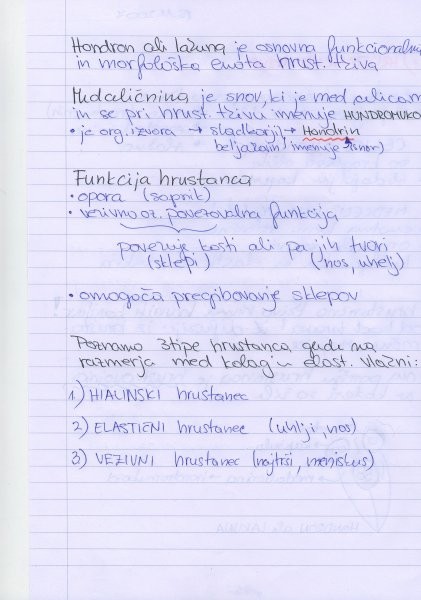 Hondron ali lakuna je osnovna funkcionalna
in morfološka enota hrust. tkiva
Medceličnina je snov, ki je med celicam
in se pri hrust. tkivu imenuje HONDROMUKO
• je org. izvora → sladkorji, → Hondrin
beljakovin (imenuje snov)
Funkcija hrustanca
• opora (sapnik)
• vezivno oz. povezovalna funkcija
povezuje kosti ali pa jih tvori
(sklepi) (nos, uhelj)
• omogoča pregibovanje sklepov
Poznamo 3 tipe hrustanca glede na
razmerja med kolag in elast. vlakni:
1) HIALINSKI hrustanec
2) ELASTIČNI hrustanec (uhlji, nos)
3) VEZIVNI hrustanec (najtrši, meniskus)